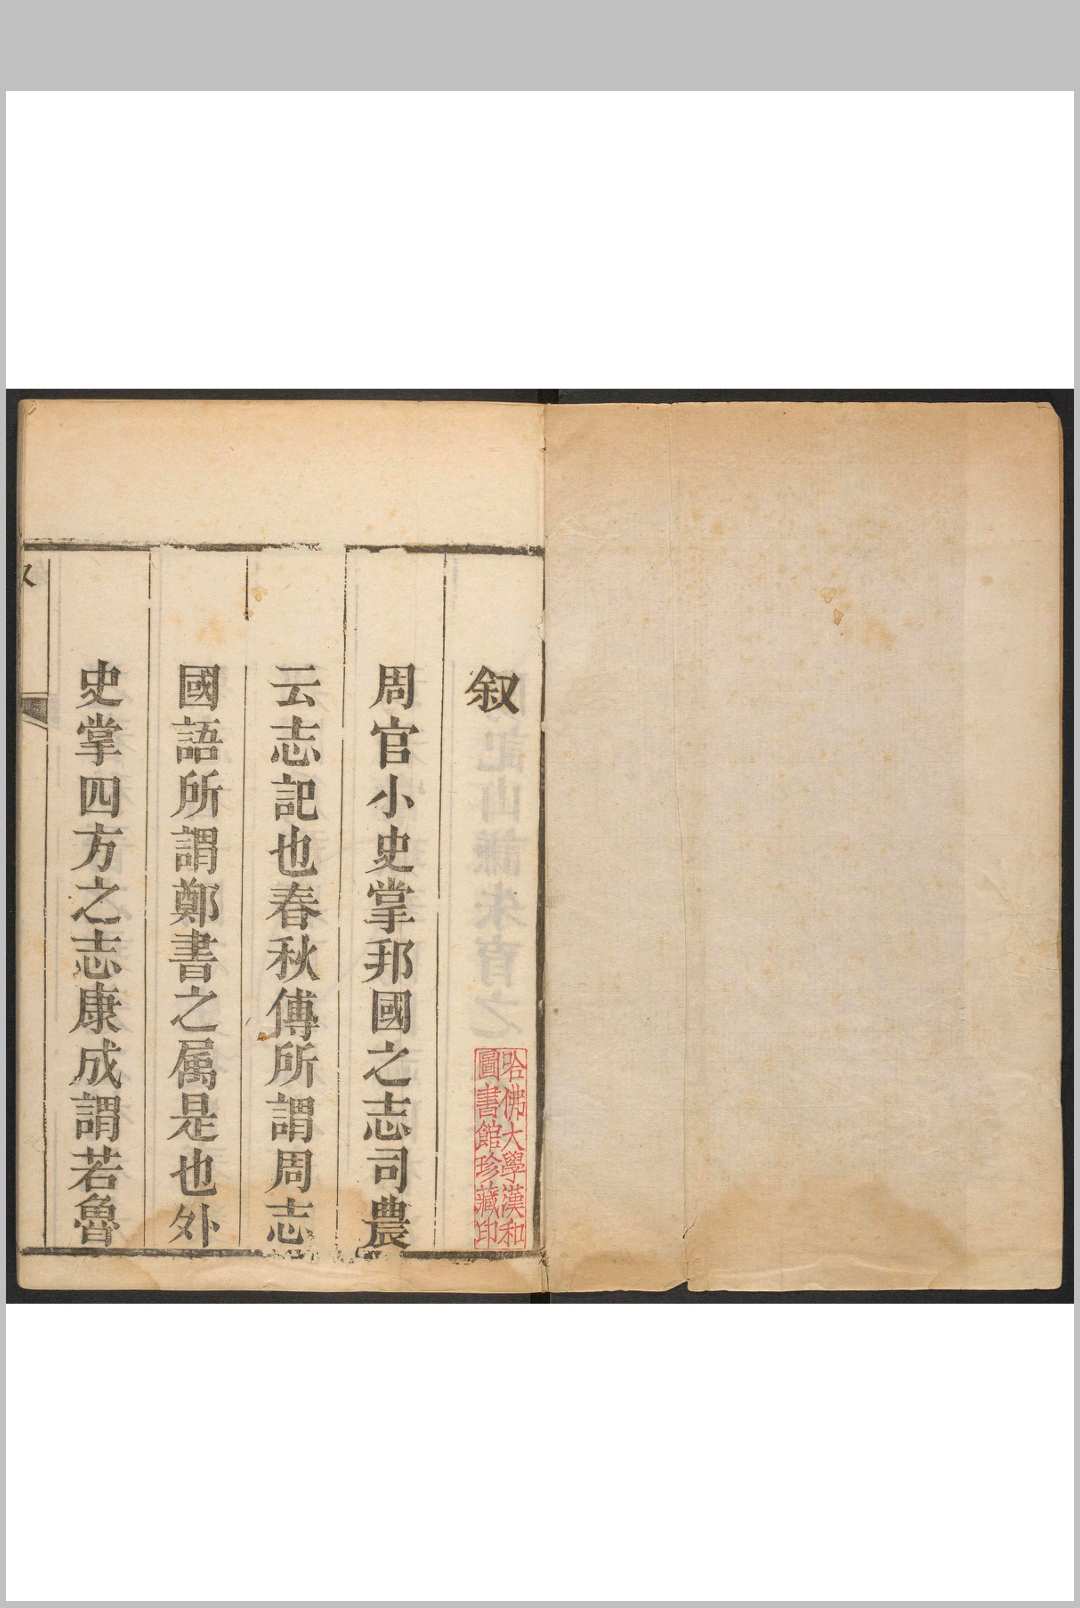 叙
哈佛大學漢和
圖書館珍藏印
周官小史掌邦國之志司農
云志記也春秋傳所謂周志
國語所謂鄭書之属是也外
史掌四方之志康成謂若魯